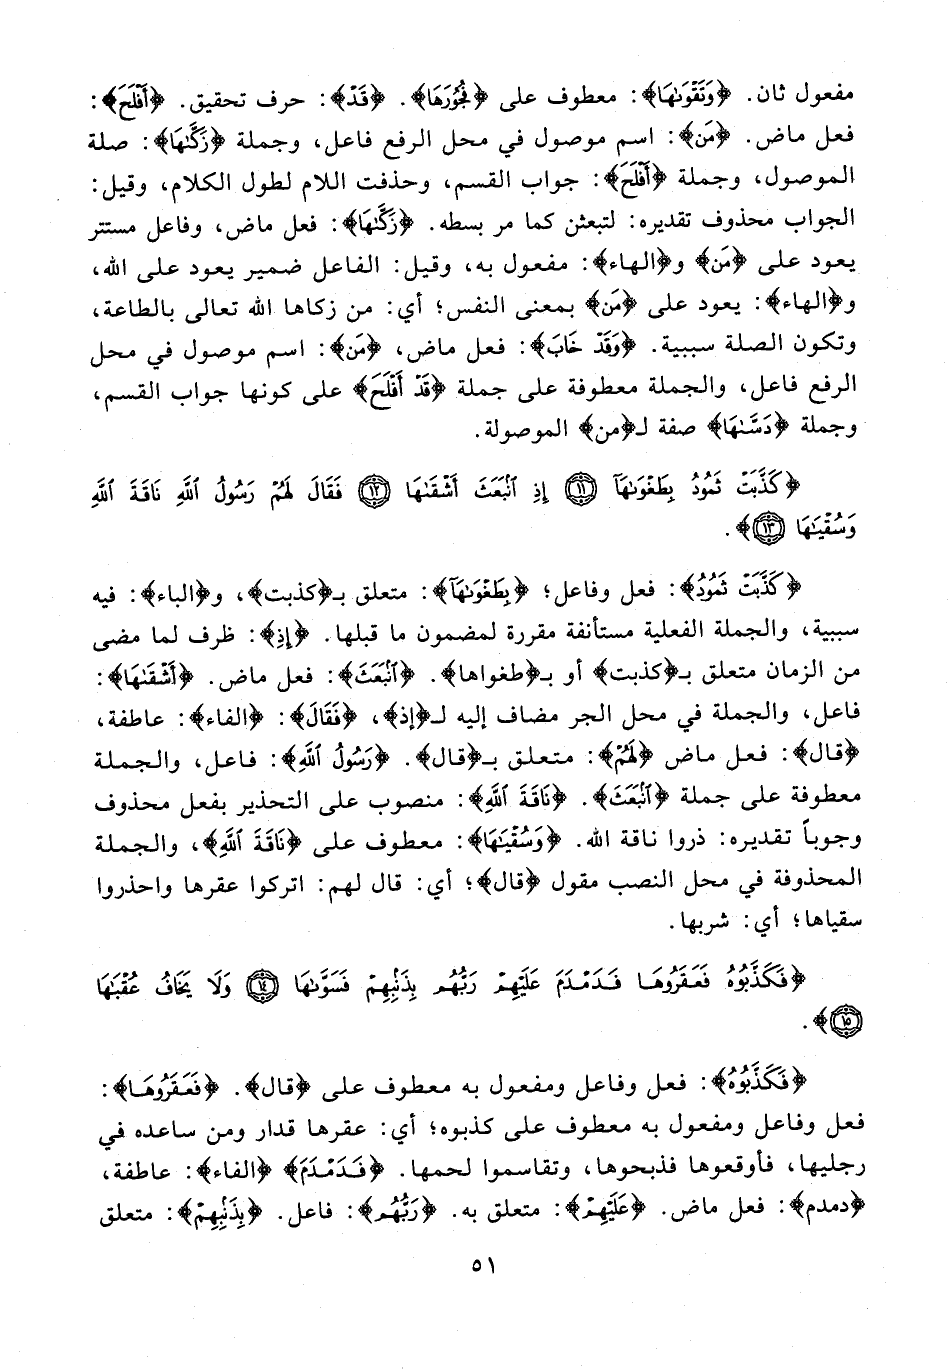 مفعول ثان. ﴿وَتَقْوَىٰهَا﴾: معطوف على ﴿فُجُورَهَا﴾. ﴿قَدْ﴾: حرف تحقيق. ﴿أَفْلَحَ﴾:
فعل ماض. ﴿مَن﴾: اسم موصول في محل الرفع فاعل، وجملة ﴿زَكَّىٰهَا﴾: صلة
الموصول، وجملة ﴿أَفْلَحَ﴾: جواب القسم، وحذفت اللام لطول الكلام، وقيل:
الجواب محذوف تقديره: لتبعثن كما مر بسطه. ﴿زَكَّىٰهَا﴾: فعل ماض، وفاعل مستتر
يعود على ﴿مَن﴾ و﴿الهاء﴾: مفعول به، وقيل: الفاعل ضمير يعود على الله،
و﴿الهاء﴾: يعود على ﴿مَن﴾ بمعنى النفس؛ أي: من زكاها الله تعالى بالطاعة،
وتكون الصلة سببية. ﴿وَقَدْ خَابَ﴾: فعل ماض، ﴿مَن﴾: اسم موصول في محل
الرفع فاعل، والجملة معطوفة على جملة ﴿قَدْ أَفْلَحَ﴾ على كونها جواب القسم،
وجملة ﴿دَسَّىٰهَا﴾ صفة لـ﴿من﴾ الموصولة.
﴿كَذَّبَتْ ثَمُودُ بِطَغْوَىٰهَآ ۝١١ إِذِ ٱنۢبَعَثَ أَشْقَىٰهَا ۝١٢ فَقَالَ لَهُمْ رَسُولُ ٱللَّهِ نَاقَةَ ٱللَّهِ
وَسُقْيَٰهَا ۝١٣﴾.
﴿كَذَّبَتْ ثَمُودُ﴾: فعل وفاعل؛ ﴿بِطَغْوَىٰهَآ﴾: متعلق بـ﴿كذبت﴾، و﴿الباء﴾: فيه
سببية، والجملة الفعلية مستأنفة مقررة لمضمون ما قبلها. ﴿إِذِ﴾: ظرف لما مضى
من الزمان متعلق بـ﴿كذبت﴾ أو بـ﴿طغواها﴾. ﴿ٱنۢبَعَثَ﴾: فعل ماض. ﴿أَشْقَىٰهَا﴾:
فاعل، والجملة في محل الجر مضاف إليه لـ﴿إذ﴾، ﴿فَقَالَ﴾: ﴿الفاء﴾: عاطفة،
﴿قال﴾: فعل ماض ﴿لَهُمْ﴾: متعلق بـ﴿قال﴾. ﴿رَسُولُ ٱللَّهِ﴾: فاعل، والجملة
معطوفة على جملة ﴿ٱنۢبَعَثَ﴾. ﴿نَاقَةَ ٱللَّهِ﴾: منصوب على التحذير بفعل محذوف
وجوباً تقديره: ذروا ناقة الله. ﴿وَسُقْيَٰهَا﴾: معطوف على ﴿نَاقَةَ ٱللَّهِ﴾، والجملة
المحذوفة في محل النصب مقول ﴿قال﴾؛ أي: قال لهم: اتركوا عقرها واحذروا
سقياها؛ أي: شربها.
﴿فَكَذَّبُوهُ فَعَقَرُوهَا فَدَمْدَمَ عَلَيْهِمْ رَبُّهُم بِذَنۢبِهِمْ فَسَوَّىٰهَا ۝١٤ وَلَا يَخَافُ عُقْبَٰهَا
۝١٥﴾.
﴿فَكَذَّبُوهُ﴾: فعل وفاعل ومفعول به معطوف على ﴿قال﴾. ﴿فَعَقَرُوهَا﴾:
فعل وفاعل ومفعول به معطوف على كذبوه؛ أي: عقرها قدار ومن ساعده في
رجليها، فأوقعوها فذبحوها، وتقاسموا لحمها. ﴿فَدَمْدَمَ﴾ ﴿الفاء﴾: عاطفة،
﴿دمدم﴾: فعل ماض. ﴿عَلَيْهِمْ﴾: متعلق به. ﴿رَبُّهُم﴾: فاعل. ﴿بِذَنۢبِهِمْ﴾: متعلق
٥١